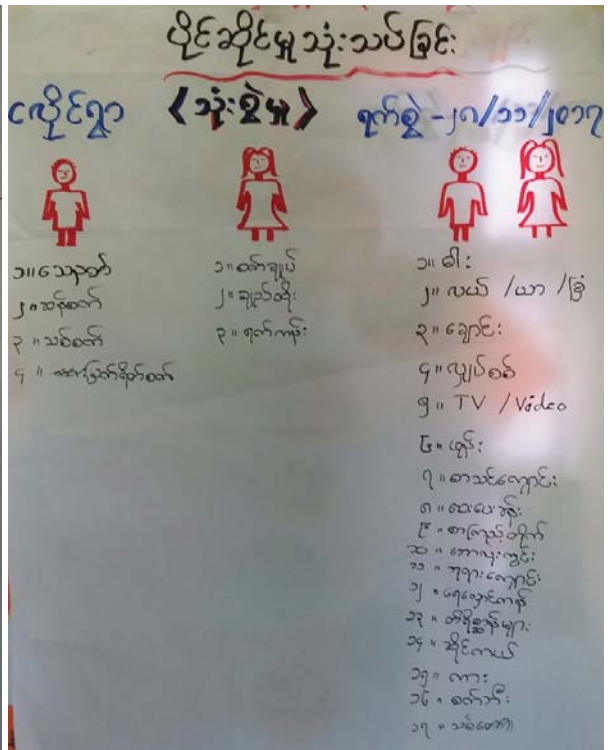 ပိုင်ဆိုင်မှု သုံးသပ်ခြင်း
ငလိုင်ရွာ
《သုံးစွဲမှု》
ရက်စွဲ -၂၈/၁၁/၂၀၁၇
၁။ သေနတ်
၂။ ဆန်စက်
၃။ သစ်စက်
၄။
၁။ ထ်ချုပ်
၂။ ချည်ထိုး
၃။ ရက်ကန်း
၁။ ဓါး
၂။ လယ် /ယာ /ခြံ
၃။ ချောင်း
၄။ လျှပ်စစ်
၅။ TV / Video
၆။ ဖုန်း
၇။ စာသင်ကျောင်း
၈။ ဆေးပေးခန်း
၉။ စာကြည့်တိုက်
၁၀။ ဘောလုံးကွင်း
၁၁။ ဘုရားကျောင်း
၁၂။ ရေလှောင်ကန်
၁၃။ တိရိစ္ဆာန်များ
၁၄။ ဆိုင်ကယ်
၁၅။ ကား
၁၆။ စက်ဘီး
၁၇။ သစ်တော